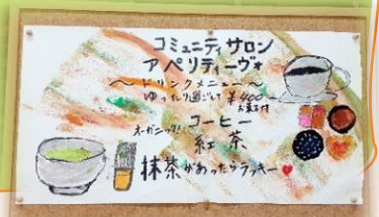 コミュニティサロン
アペリティーヴォ
～ドリンクメニュー～
ゆったり過ごして ¥400
お菓子付
オーガニック! コーヒー
紅茶
抹茶があったらラッキー♥